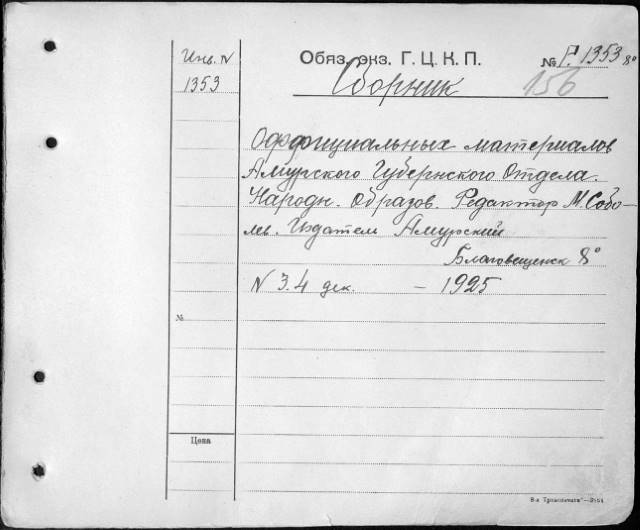 Инв. N
1353
Обяз. экз. Г. Ц. К. П.
№ Р. 1353 8º
Сборник
156
Оффициальных материалов
Амурского Губернского Отдела.
Народн. Образов. Редактор М. Собо-
лев. Издатель Амурский
Благовещенск 8º
N 3.4 дек. — 1925
№
Цена